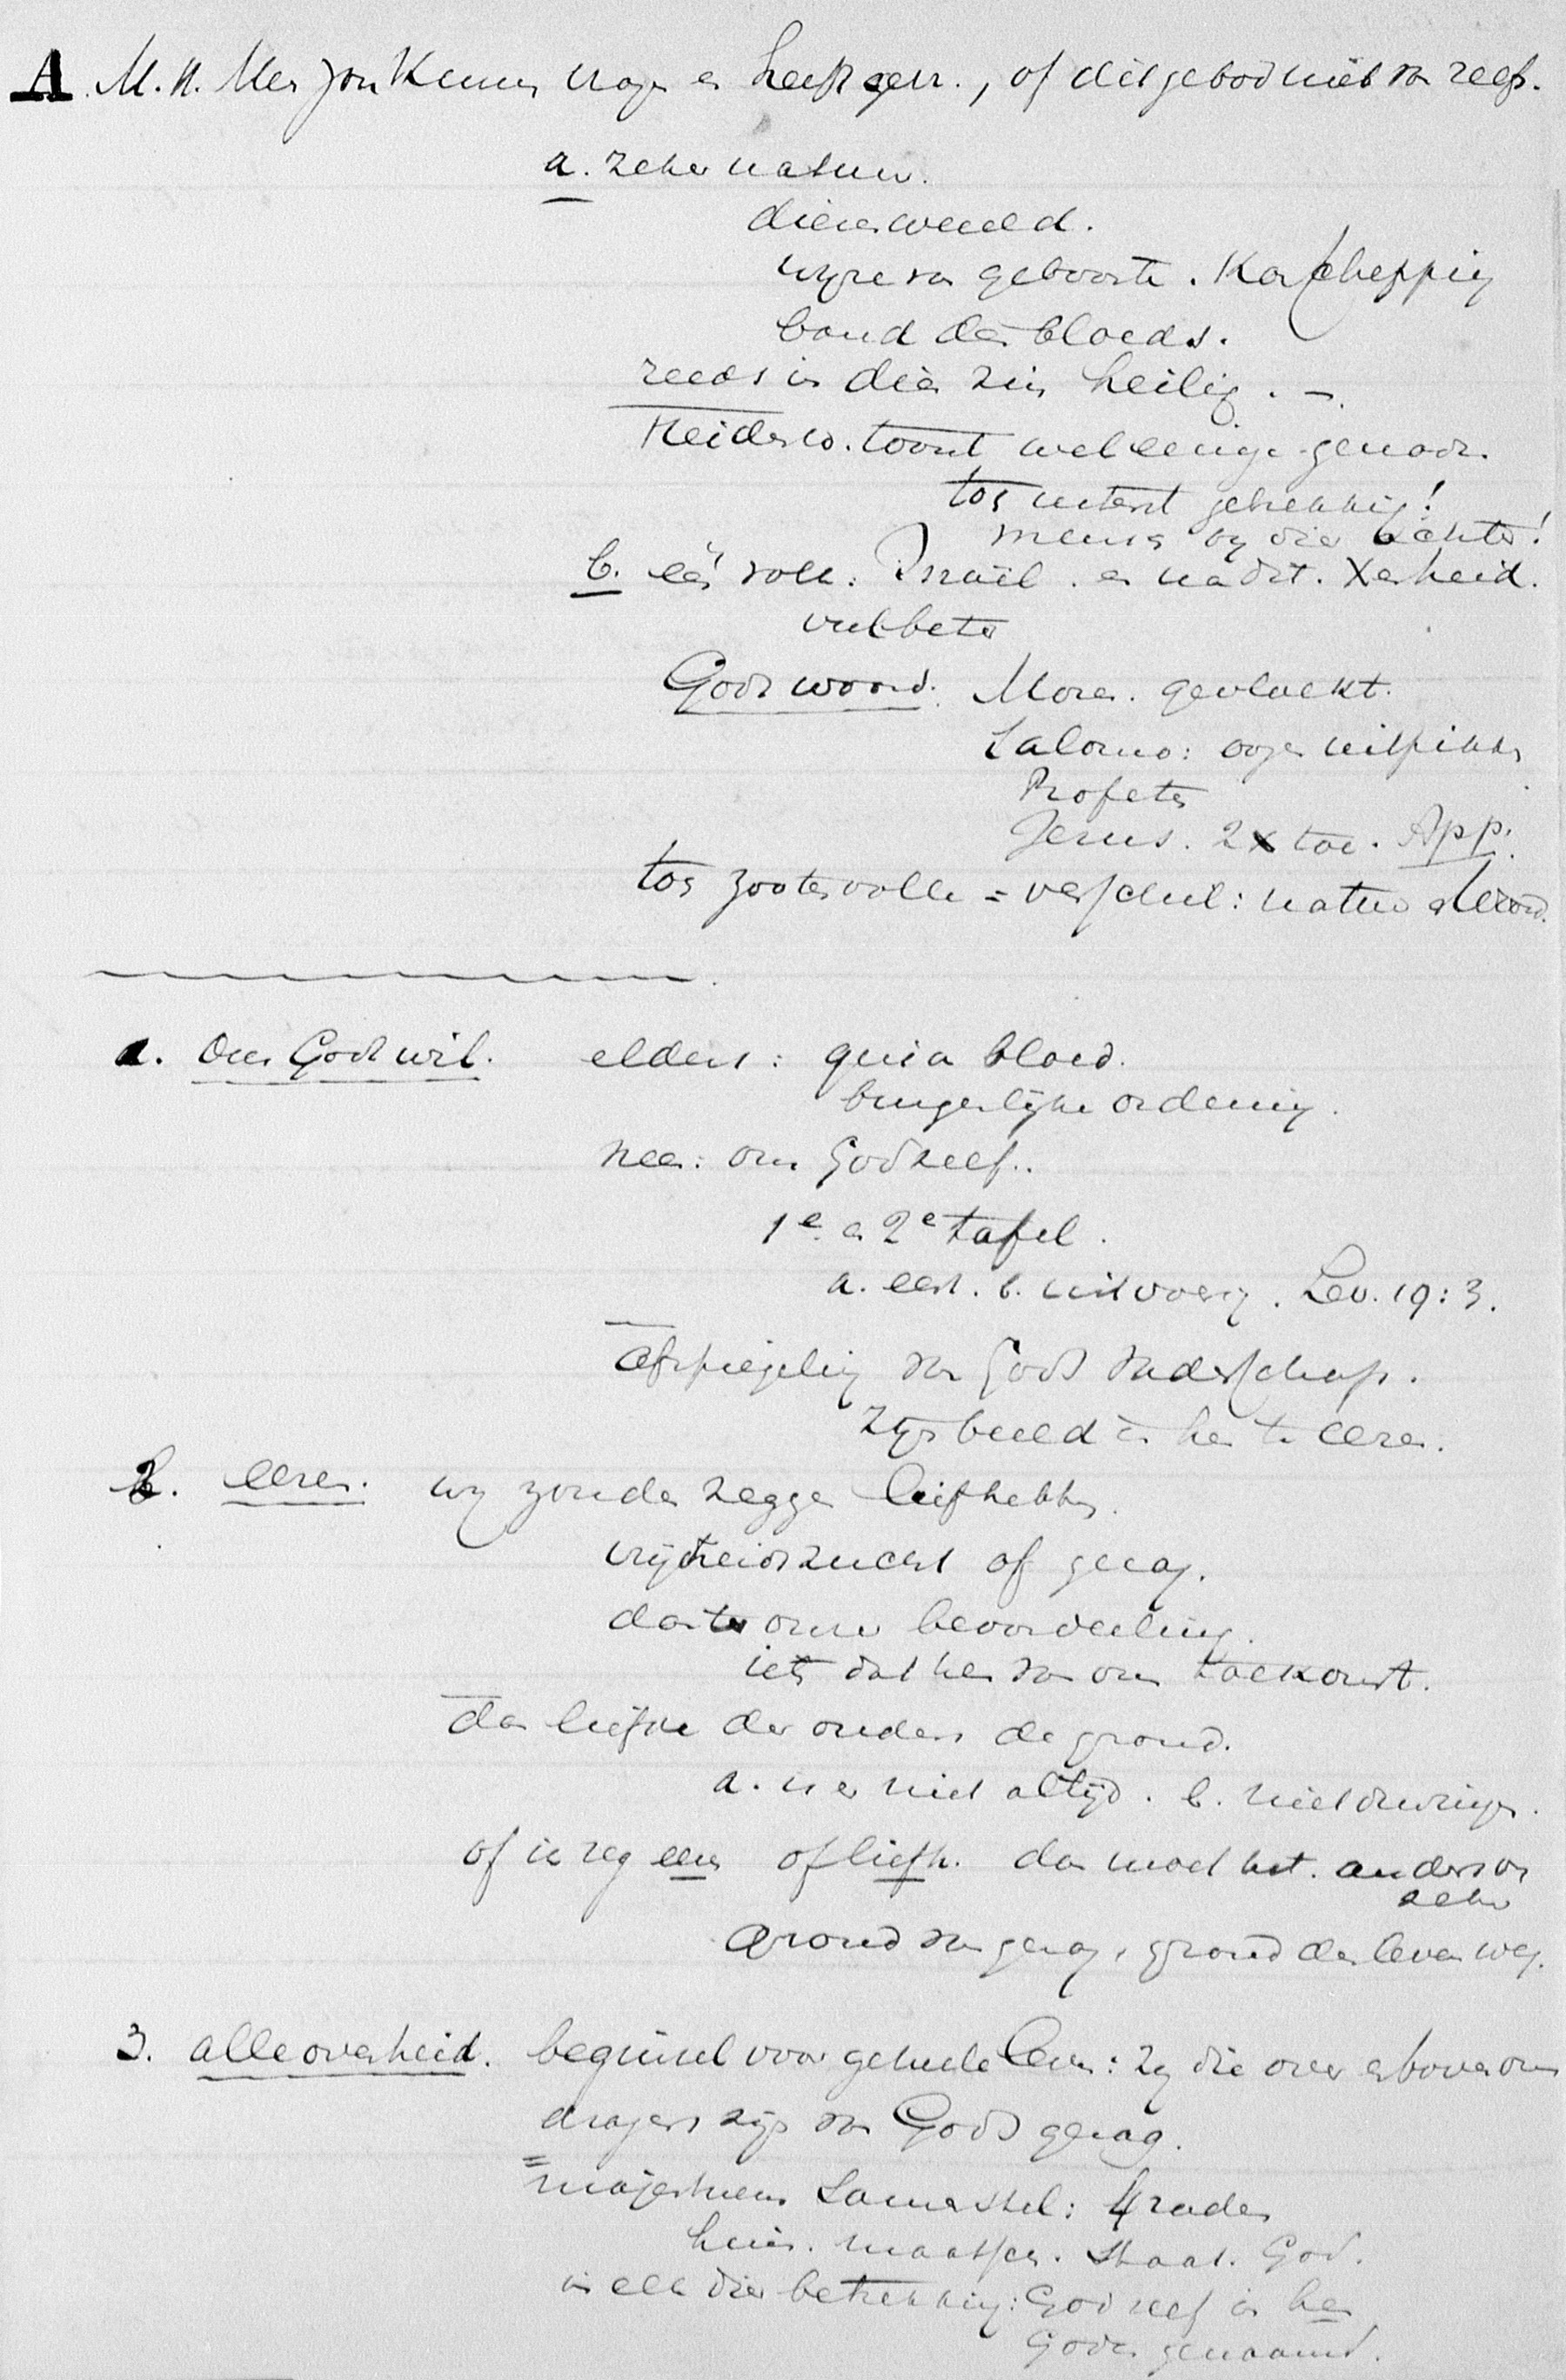 A. M.H. Men zou kunnen vragen en heeft gevr., of dit gebod niet van zelf.
a. zeker natuur.
dierenwereld.
wyze van geboorte. Kar schepping
band des bloeds.
reeds in dien zin heilig. –.
Heidenw. toont wel eenige genade.
toch uiterst gebrekkig!
mensch by dier achter!
b. één volk: Israël. en nadat. Xenheid.
veel beter
Gods woord. Mozes. gevloekt.
Salomo: oogen uitpikken
Profeten
Jezus. 2x toe. App.
toch zooten volle = verschil: natuur en Woord.
a. Om Gods wil. elders: quia bloed.
burgerlijke ordening.
neen: om God zelf..
1e en 2e tafel.
a. eerst. b. uitvoerig. Lev. 19:3.
afspiegeling van Gods vaderschap.
Zijn beeld in hen te eeren.
b. eeren. wy zouden zeggen liefhebben.
vrijheidszucht of gezag.
dan ter onzer beoordeeling.
iets dat hen van ons toekomt.
dan liefde der ouders de grond.
a. is er niet altijd. b. niet dwingen.
of ik zeg eeren of liefh. dan moet het. anders om
zeker
Grond van gezag, grond des levens weg.
3. alle overheid. beginsel voor geheele leven: zy die over en boven ons
dragers zijn van Gods gezag.
= majesteuze Samenstel: 4 raden
huis. maatsch. Staat. God.
in elk dier betrekking: God zelf in hen
Goden genaamd.